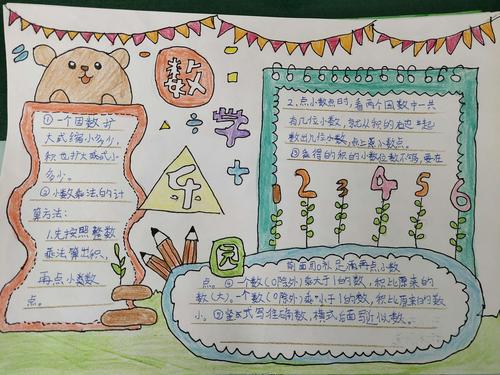 数
学
乐
园
①一个因数扩
大或缩小多少,
积也扩大或小
多少。
②小数乘法的计
算方法:
1.先按照整数
乘法算出积,
再点小数
点。
2.点小数点时,看两个因数中一共
有几位小数,就从积的右边起
数出几位小数,点上小数点。
③乘得的积的小数位数不够,要在
1 2 3 4 5 6
前面用0补足,再点小数
点。④一个数(0除外)乘大于1的数,积比原来的
数(大)。一个数(0除外)乘小于1的数,积比原来的数
小。⑤竖式写准确数,横式后面写近似数。